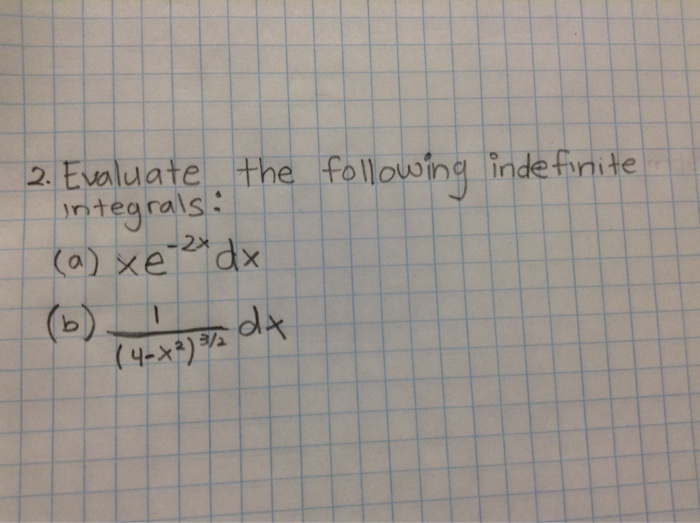 2. Evaluate the following indefinite
integrals:
(a) xe^{-2x} dx
(b) \frac{1}{(4-x^2)^{3/2}} dx